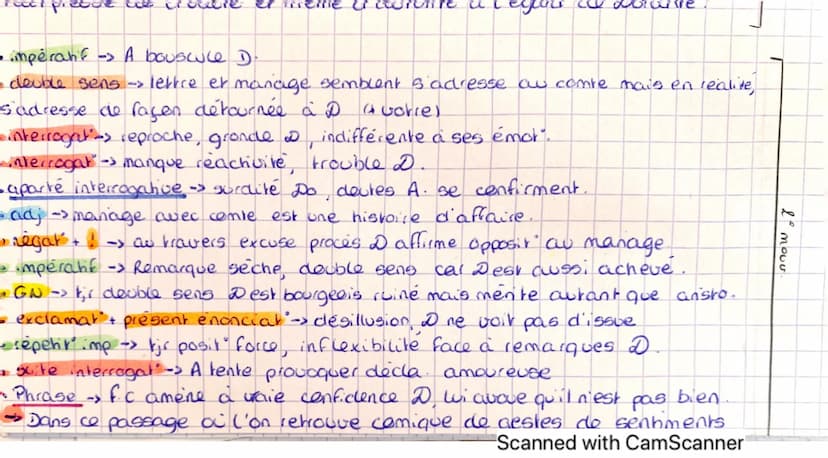 • impératif -> A bouscule D.
• double sens -> lettre et mariage semblent s'adresse au comte mais en réalité,
s'adresse de façon détournée à D (+ votre)
• interrogat° -> reproche, gronde D, indifférente à ses émot°.
• interrogat° -> manque réactivité, trouble D.
• aparté interrogative -> surdité Do, doutes A. se confirment.
• adj -> mariage avec comte est une histoire d'affaire.
• négat° + ! -> au travers excuse procès D affirme opposit° au mariage
• impératif -> Remarque sèche, double sens car D est aussi achevé.
• GN -> tjr double sens D est bourgeois ruiné mais mérite autant que aristo.
• exclamat° + présent énonciat° -> désillusion, D ne voit pas d'issue
• répétit° imp -> tjr posit° force, inflexibilité face à remarques D.
• suite interrogat° -> A tente provoquer décla. amoureuse
• Phrase -> f.c amène à vraie confidence D, lui avoue qu'il n'est pas bien.
-> Dans ce passage où l'on retrouve comique de gestes de sentiments
1e mouv.
Scanned with CamScanner